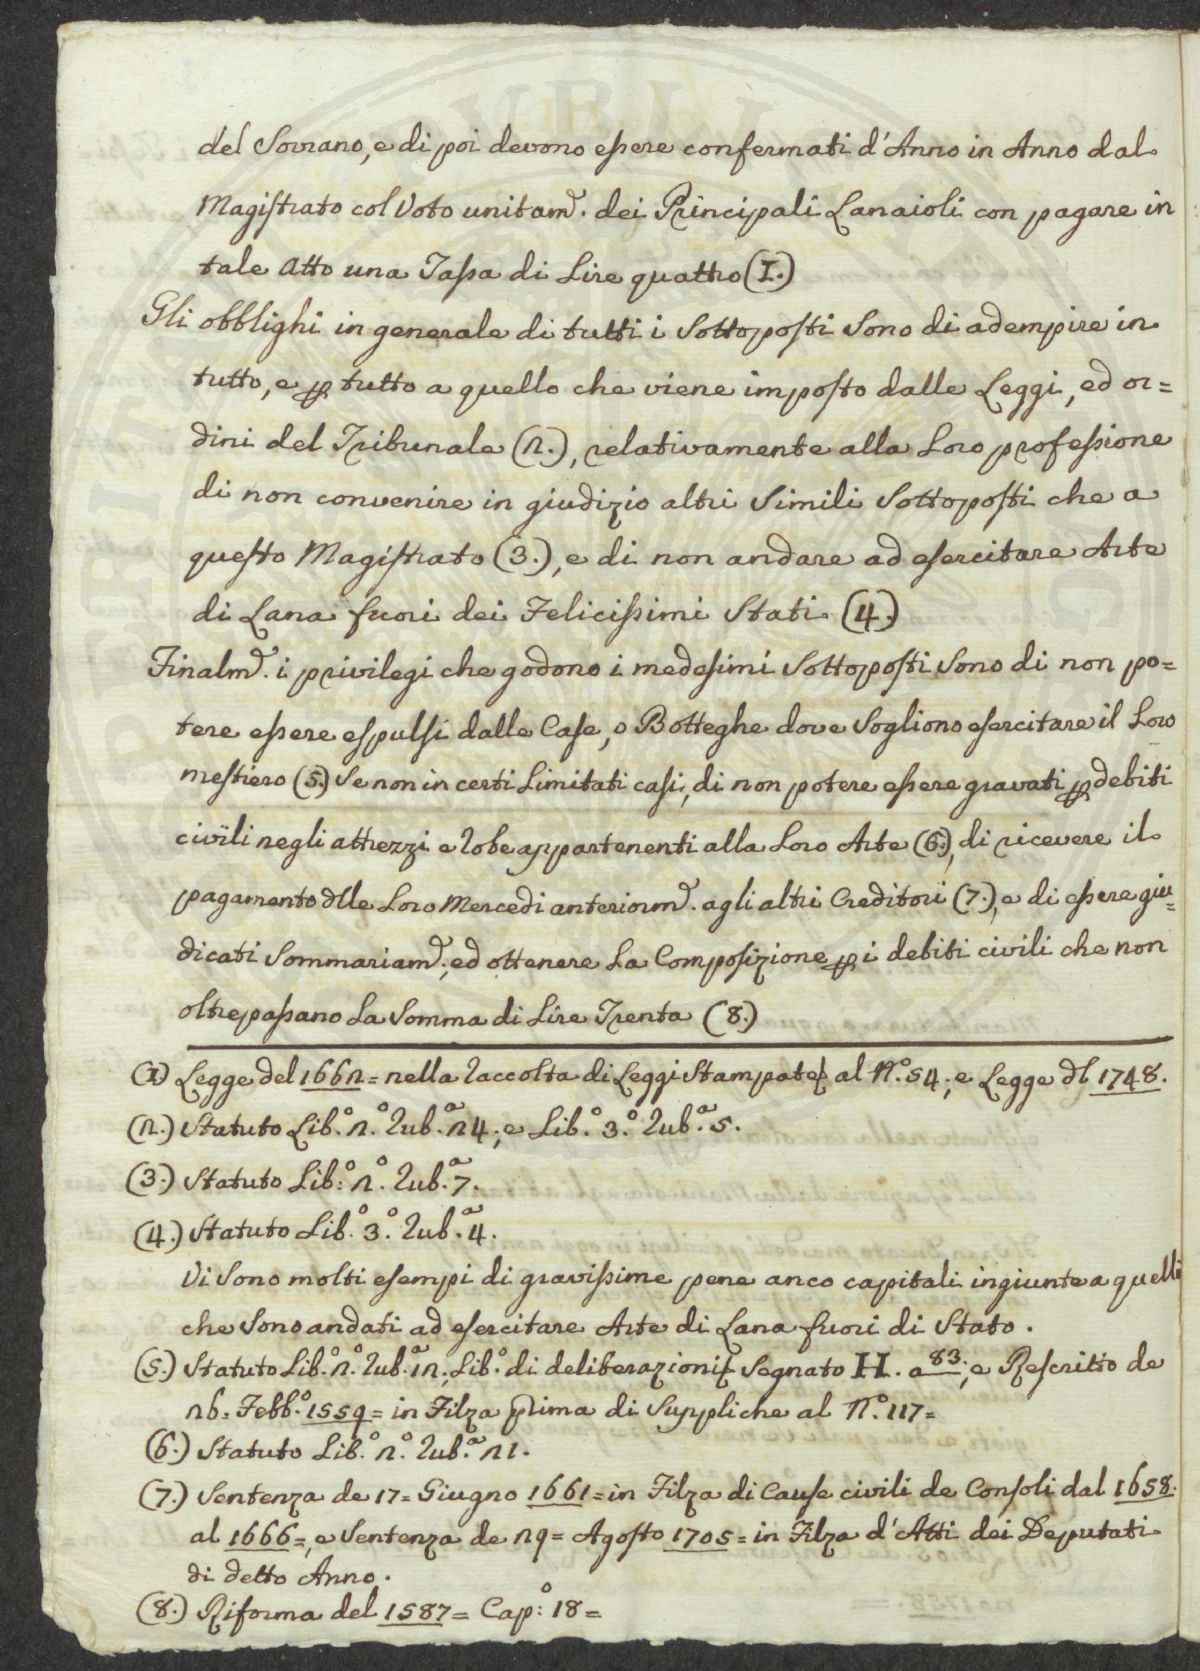 del Sovrano, e di poi devono essere confermati d'Anno in Anno dal
Magistrato col Voto unitam.e dei Principali Lanaioli con pagare in
tale Atto una Tassa di Lire quattro (1.)
Gli obblighi in generale di tutti i Sottoposti Sono di adempire in
tutto, e p tutto a quello che viene imposto dalle Leggi, ed or=
dini del Tribunale (2.), relativamente alla Loro professione
di non convenire in giudizio altri Simili Sottoposti che a
questo Magistrato (3.), e di non andare ad esercitare Arte
di Lana fuori dei Felicissimi Stati (4.)
Finalm.e i privilegi che godono i medesimi Sottoposti Sono di non po=
tere essere espulsi dalle Case, o Botteghe dove Sogliono esercitare il Loro
mestiero (5.) Se non in certi Limitati casi, di non potere essere gravati p debiti
civili negli attrezzi e robe appartenenti alla Loro Arte (6.), di ricevere il
pagamento dlle Loro Mercedi anteriorm.e agli altri Creditori (7.), e di essere giu=
dicati Sommariam.e, ed ottenere La Composizione p i debiti civili che non
oltrepassano La Somma di Lire Trenta (8.)
(1) Legge del 1662= nella Raccolta di Leggi Stampate al N.° 54.; e Legge dl 1748.
(2.) Statuto Lib.° 2.° Rub.a 24.; e Lib.° 3.° Rub.a 5.
(3.) Statuto Lib.° 2.° Rub.a 7.
(4.) Statuto Lib.° 3.° Rub.a 4.
Vi Sono molti esempi di gravissime pene anco capitali ingiunte a quelli
che Sono andati ad esercitare Arte di Lana fuori di Stato.
(5.) Statuto Lib.° 2.° Rub.a 12.; Lib.° di deliberazioni Segnato H. a 83.; e Rescritto de
26= Febb.° 1559= in Filza Prima di Suppliche al N.° 117=
(6.) Statuto Lib.° 2.° Rub.a 21.
(7.) Sentenza de 17= Giugno 1661= in Filza di Cause civili de Consoli dal 1658.
al 1666=, e Sentenza de 29= Agosto 1705= in Filza d'Atti dei Deputati
di detto Anno.
(8.) Riforma del 1587= Cap:° 18=